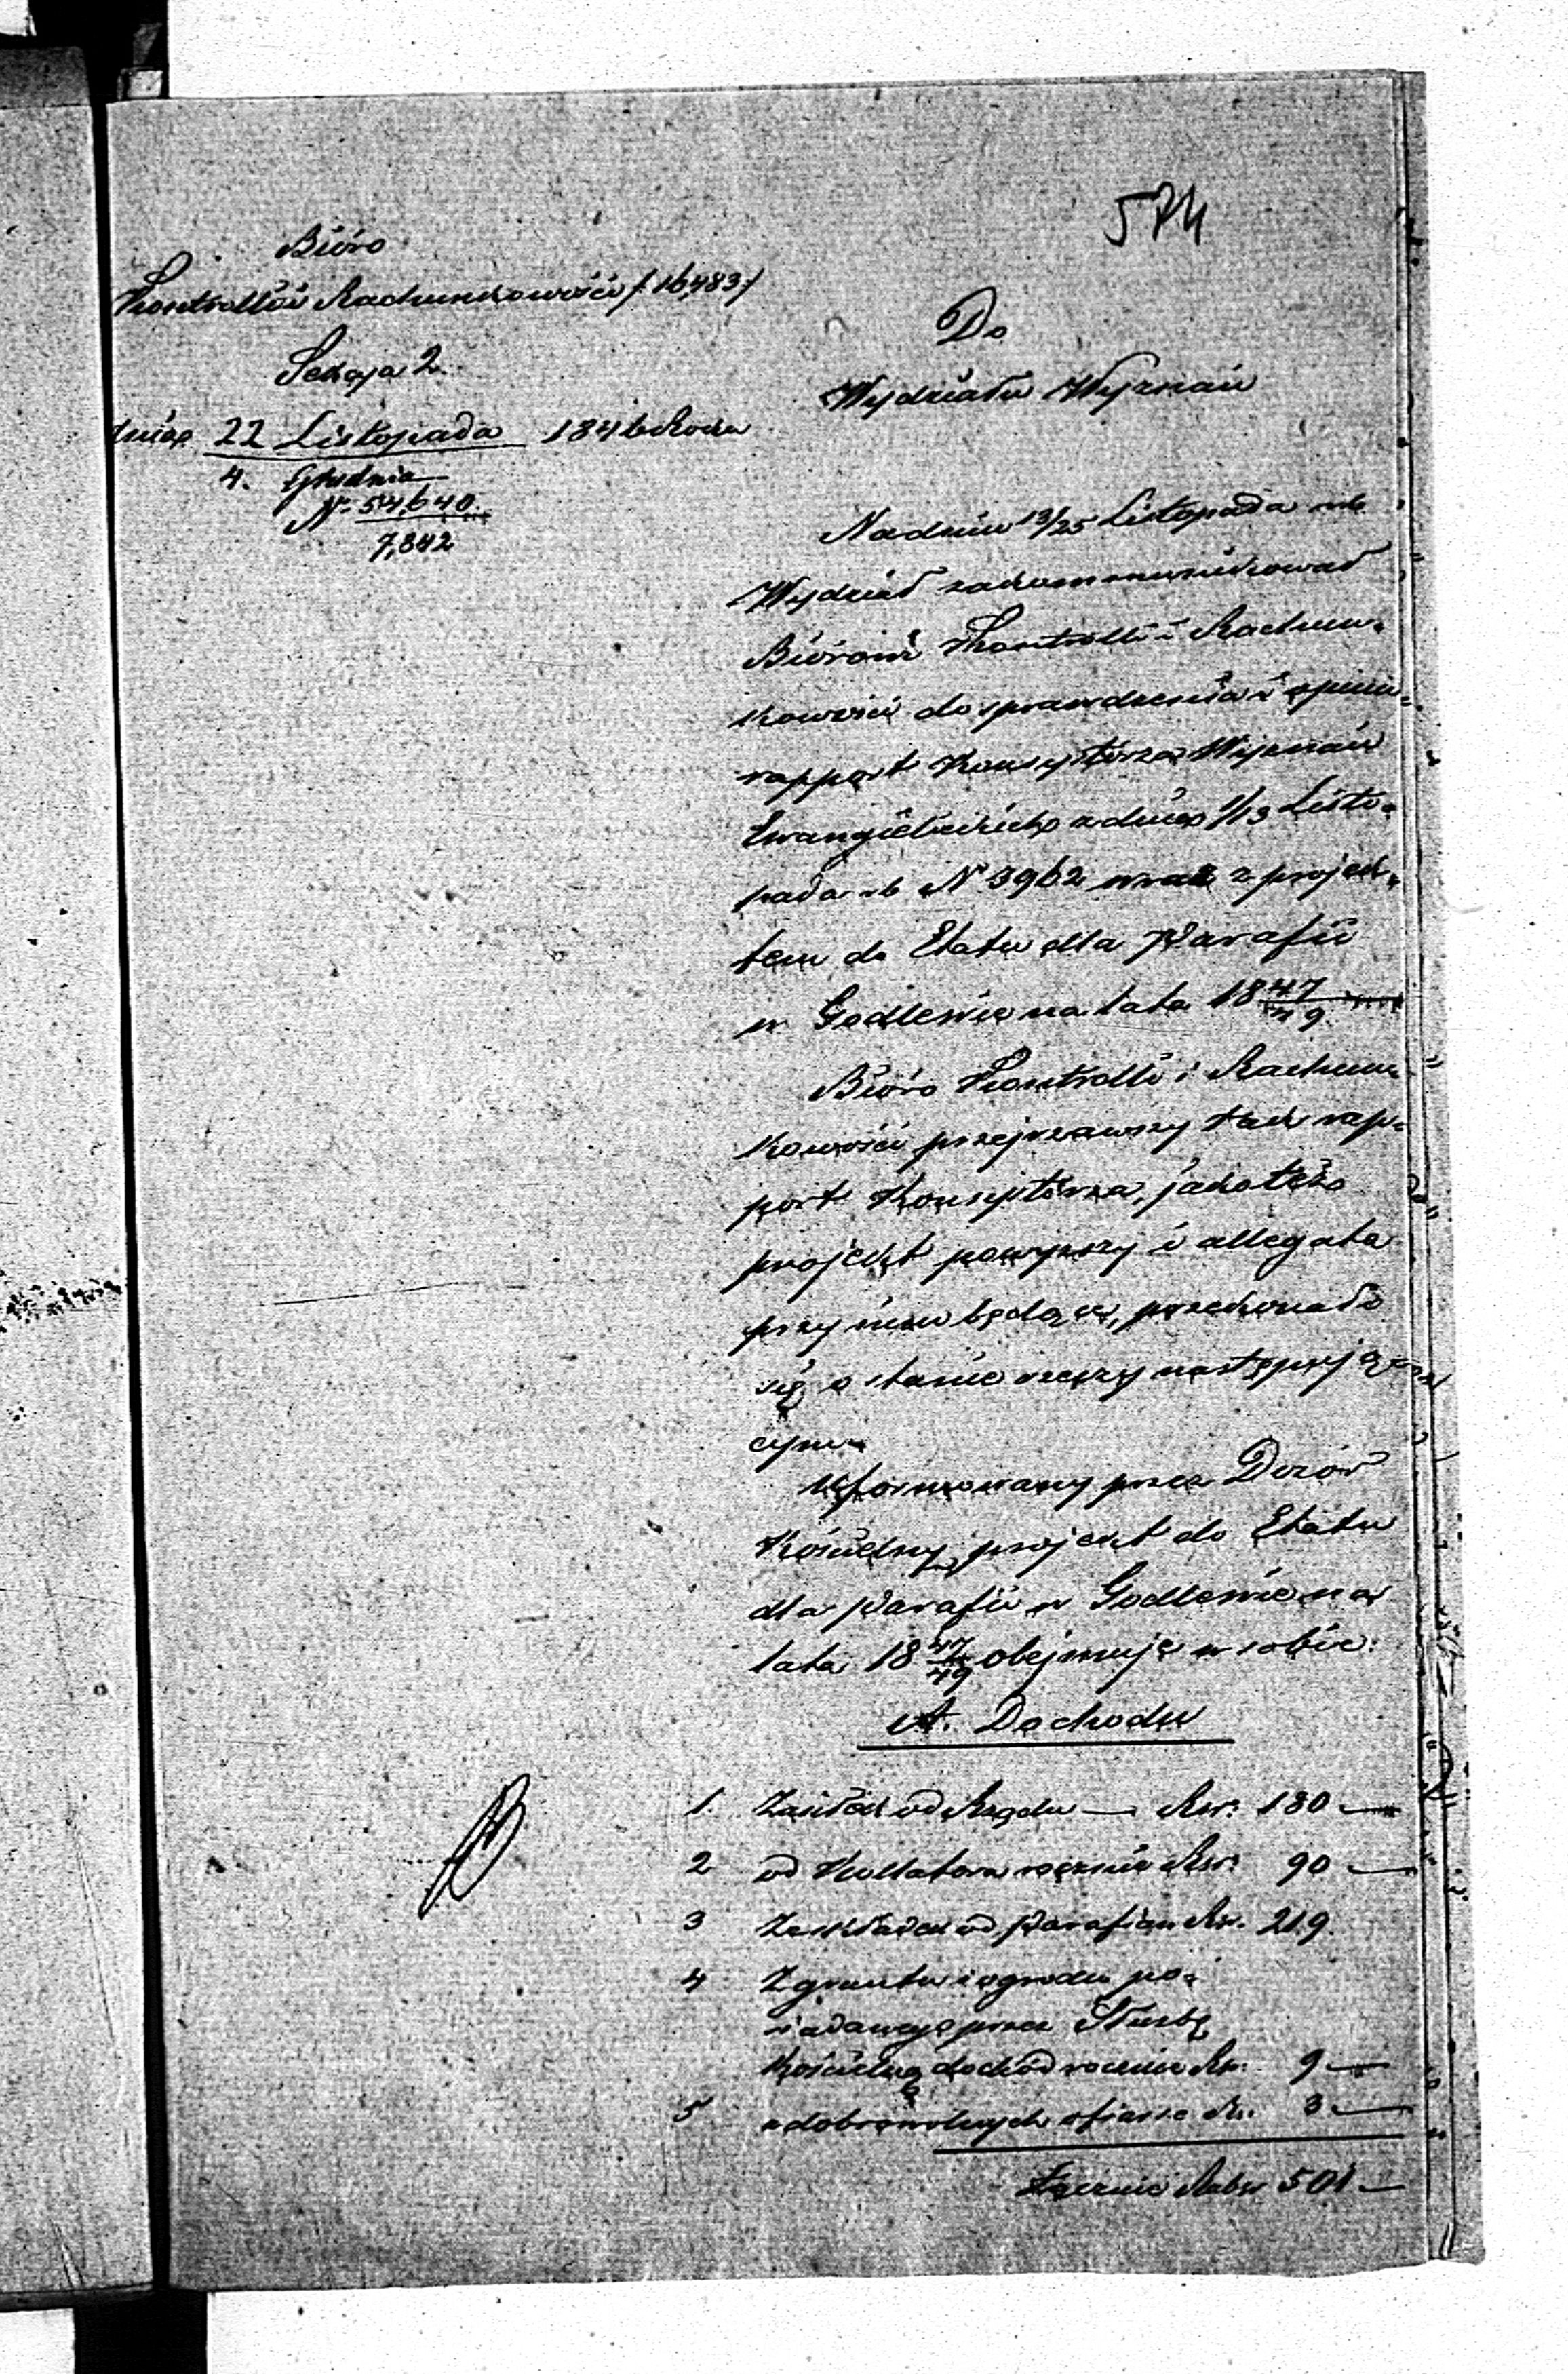 574
Biöro
Kontrolli i Rachunkowości /:16,483:/
Sekcya 2.
dnia 22 Listopada 1846 Roku
4. Grudnia
N. 54,640.
7,842
Do
Wydziału Wyznań
Na dniu 13/25 Listopada rb
Wydział zakommunikował
Biórowi Kontrolli i Rachun-
kowości do sprawdzenia i opinii
rapport Konsystorza Wyznań
Ewangielickich z dnia 1/13 Listo-
pada rb N 3962 wraz z projek-
tem do Etatu dla Parafii
w Godlewie na lata 1847/49
Bióro Kontrolli i Rachun-
kowości przejrzawszy tak rap-
port Konsystorza, jako też
projekt powyższy i allegata
przy nim będące, przekonało
się o stanie rzeczy następują-
cym
Uformowany przez Dozór
Kościelny projekt do Etatu
dla Parafii w Godlewie na
lata 1847/49 obejmuje w sobie:
A. Dochodu
1. Zasiłek od Rządu — Rsr. 180 —
2 od Kollatora rocznie Rsr. 90 —
3 Ze składek od Parafian Rsr. 219.
4 Z gruntu i ogrodu po-
siadanego przez Służbę
Kościelną dochód rocznie Rsr. 9 —
5 z dobrowolnych ofiar Rs. 3 —
Łącznie Rubsr 501 —